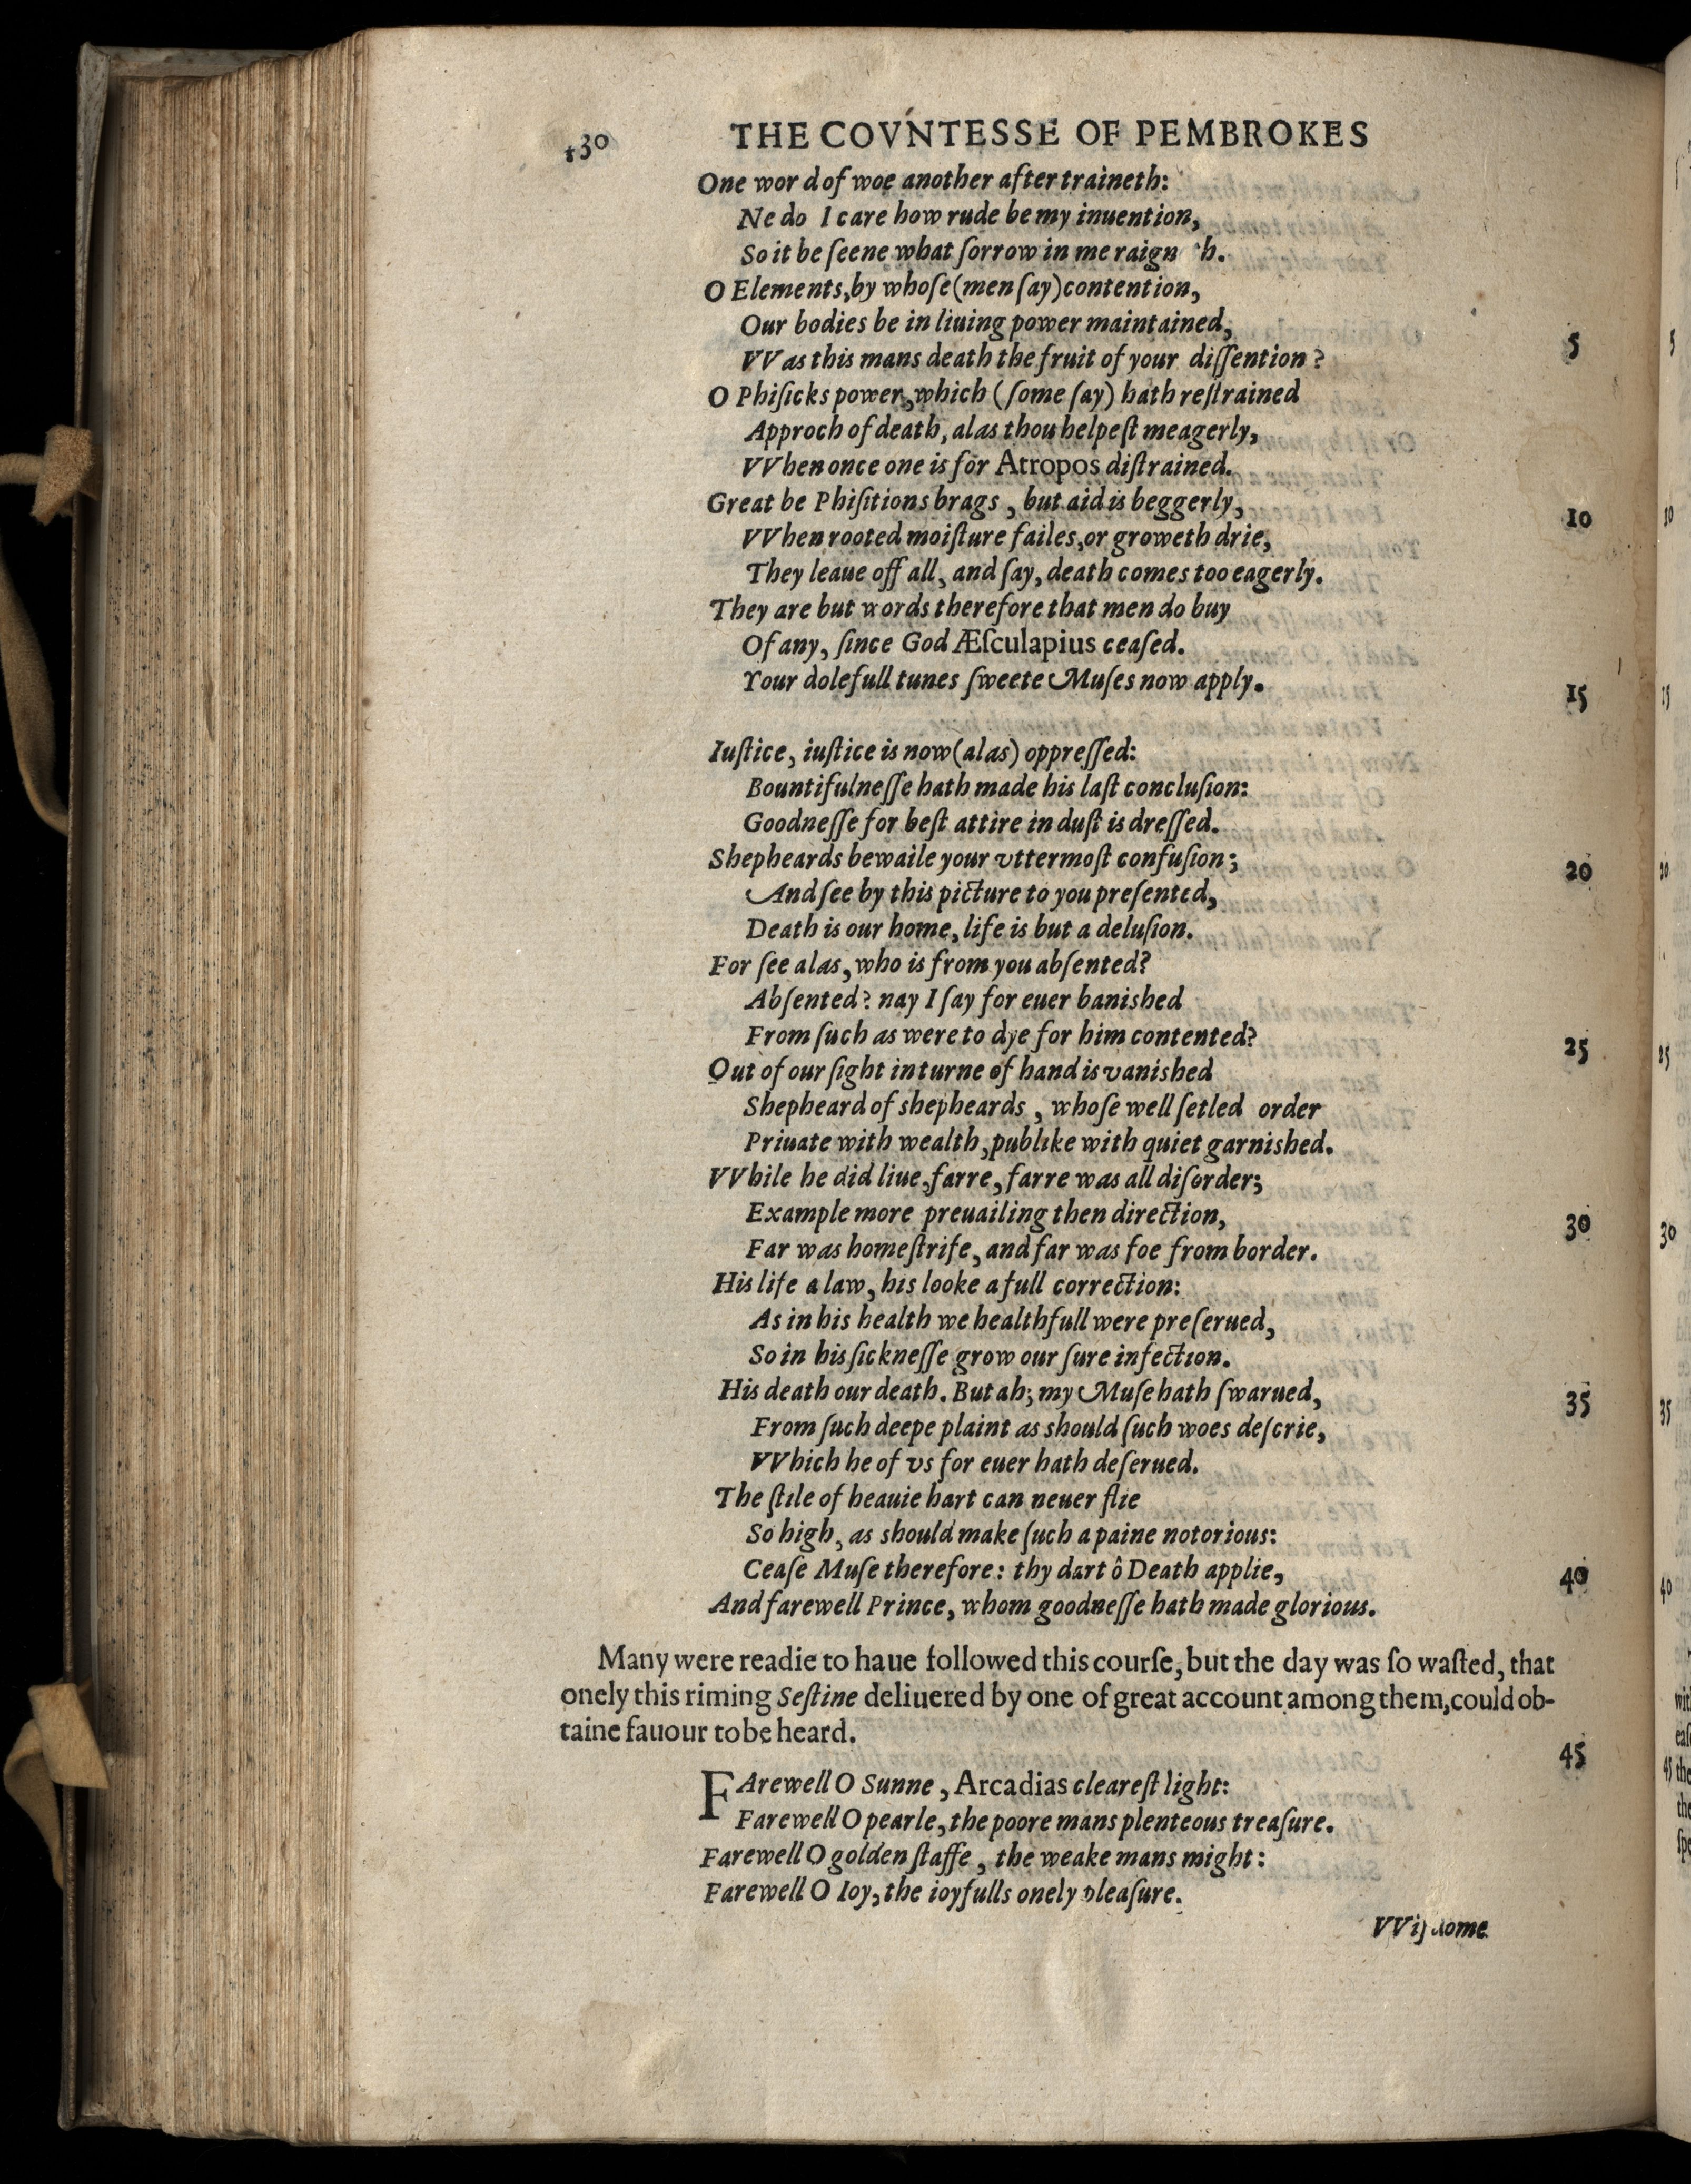 430 THE COVNTESSE OF PEMBROKES
One word of woe another after traineth:
Ne do I care how rude be my inuention,
So it be ſeene what ſorrow in me raign h.
O Elements, by whoſe (men ſay) contention,
Our bodies be in liuing power maintained,
VVas this mans death the fruit of your diſſention? 5
O Phiſicks power, which (ſome ſay) hath reſtrained
Approch of death, alas thou helpeſt meagerly,
VVhen once one is for Atropos diſtrained.
Great be Phiſitions brags, but aid is beggerly,
VVhen rooted moiſture failes, or groweth drie, 10
They leaue off all, and ſay, death comes too eagerly.
They are but words therefore that men do buy
Of any, ſince God Æſculapius ceaſed.
Your dolefull tunes ſweete Muſes now apply. 15
Iuſtice, iuſtice is now (alas) oppreſſed:
Bountifulneſſe hath made his laſt concluſion:
Goodneſſe for beſt attire in duſt is dreſſed.
Shepheards bewaile your vttermoſt confuſion;
And ſee by this picture to you preſented, 20
Death is our home, life is but a deluſion.
For ſee alas, who is from you abſented?
Abſented? nay I ſay for euer banished
From ſuch as were to dye for him contented?
Out of our ſight in turne of hand is vanished 25
Shepheard of shepheards, whoſe well ſetled order
Priuate with wealth, publike with quiet garnished.
VVhile he did liue, farre, farre was all diſorder;
Example more preuailing then direction,
Far was home ſtrife, and far was foe from border. 30
His life a law, his looke a full correction:
As in his health we healthfull were preſerued,
So in his ſickneſſe grow our ſure infection.
His death our death. But ah; my Muſe hath ſwarued,
From ſuch deepe plaint as should ſuch woes deſcrie, 35
VVhich he of vs for euer hath deſerued.
The ſtile of heauie hart can neuer flie
So high, as should make ſuch a paine notorious:
Ceaſe Muſe therefore: thy dart ô Death applie,
And farewell Prince, whom goodneſſe hath made glorious. 40
Many were readie to haue followed this courſe, but the day was ſo waſted, that
onely this riming Seſtine deliuered by one of great account among them, could ob-
taine fauour to be heard.
45
FArewell O Sunne, Arcadias cleareſt light:
Farewell O pearle, the poore mans plenteous treaſure.
Farewell O golden ſtaffe, the weake mans might:
Farewell O Ioy, the ioyfulls onely pleaſure.
VViſdome